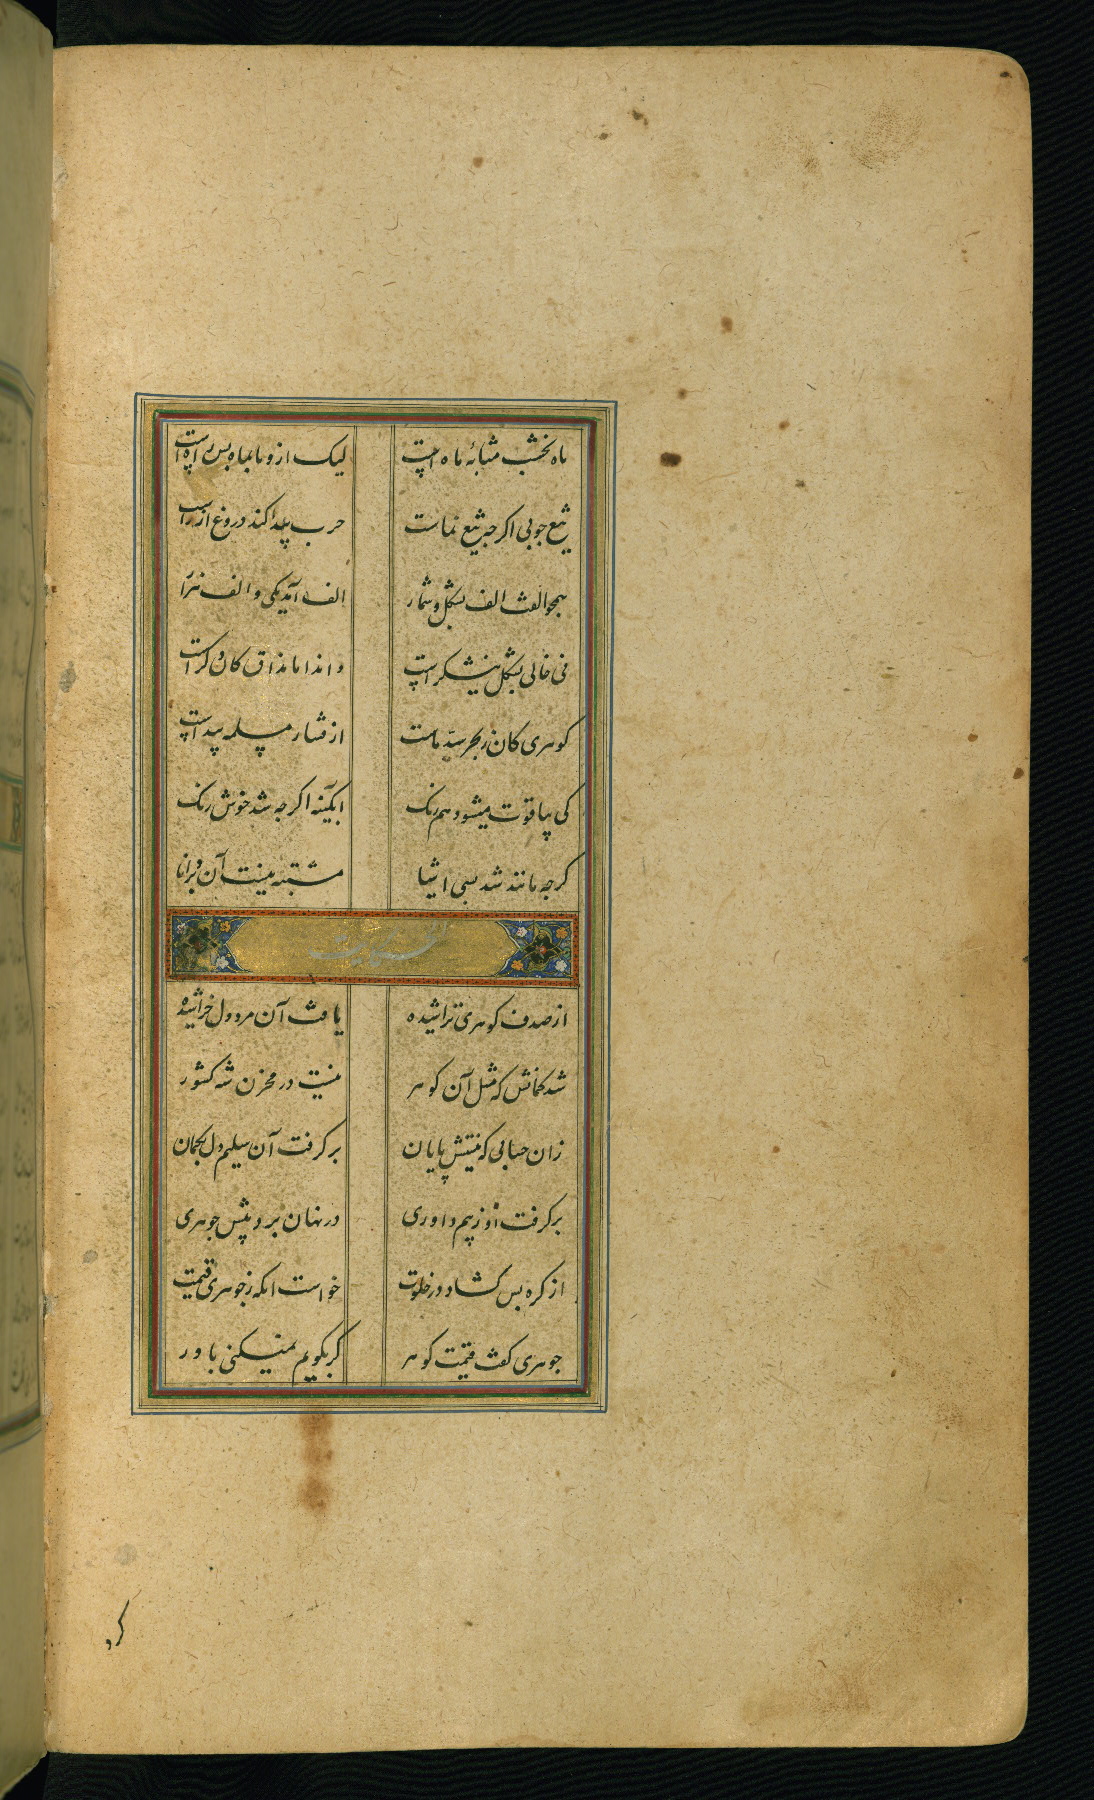 ماه نخشب مثابهٔ ماه است لیک ازو تا بماه بس راه است
تیغ چوبی اکرچه تیغ نماست حرب پیدا کند دروغ از راست
همچو الف الف بشکل و شمار الف آمد یکی و الف هزار
نی خالی بشکل نیشکر است داند اما مذاق کان دکر است
کوهری کان ز بحر سرمد ماست از فشار پیداست
کی بیاقوت میشود هم رنک ابکینه اکرچه شد خوش رنک
کرچه مانند شد بسی اشیا مشتبه نیست آن بر دانا
الحکایت
از صدف کوهری تراشیده یافت آن مرد دل خراشیده
شد کمانش که مثل آن کوهر نیست در مخزن شه کشور
زان حسابی که نیستش پایان بر کرفت آن سلیم دل بکمان
برکرفت او ز بهم داوری در نهان برد پیش جوهری
از کره بس کشاد در خلوت خواست انکه ز جوهری قیمت
جوهری کفت قیمت کوهر کر بکویم نمیکنی باور
کرد